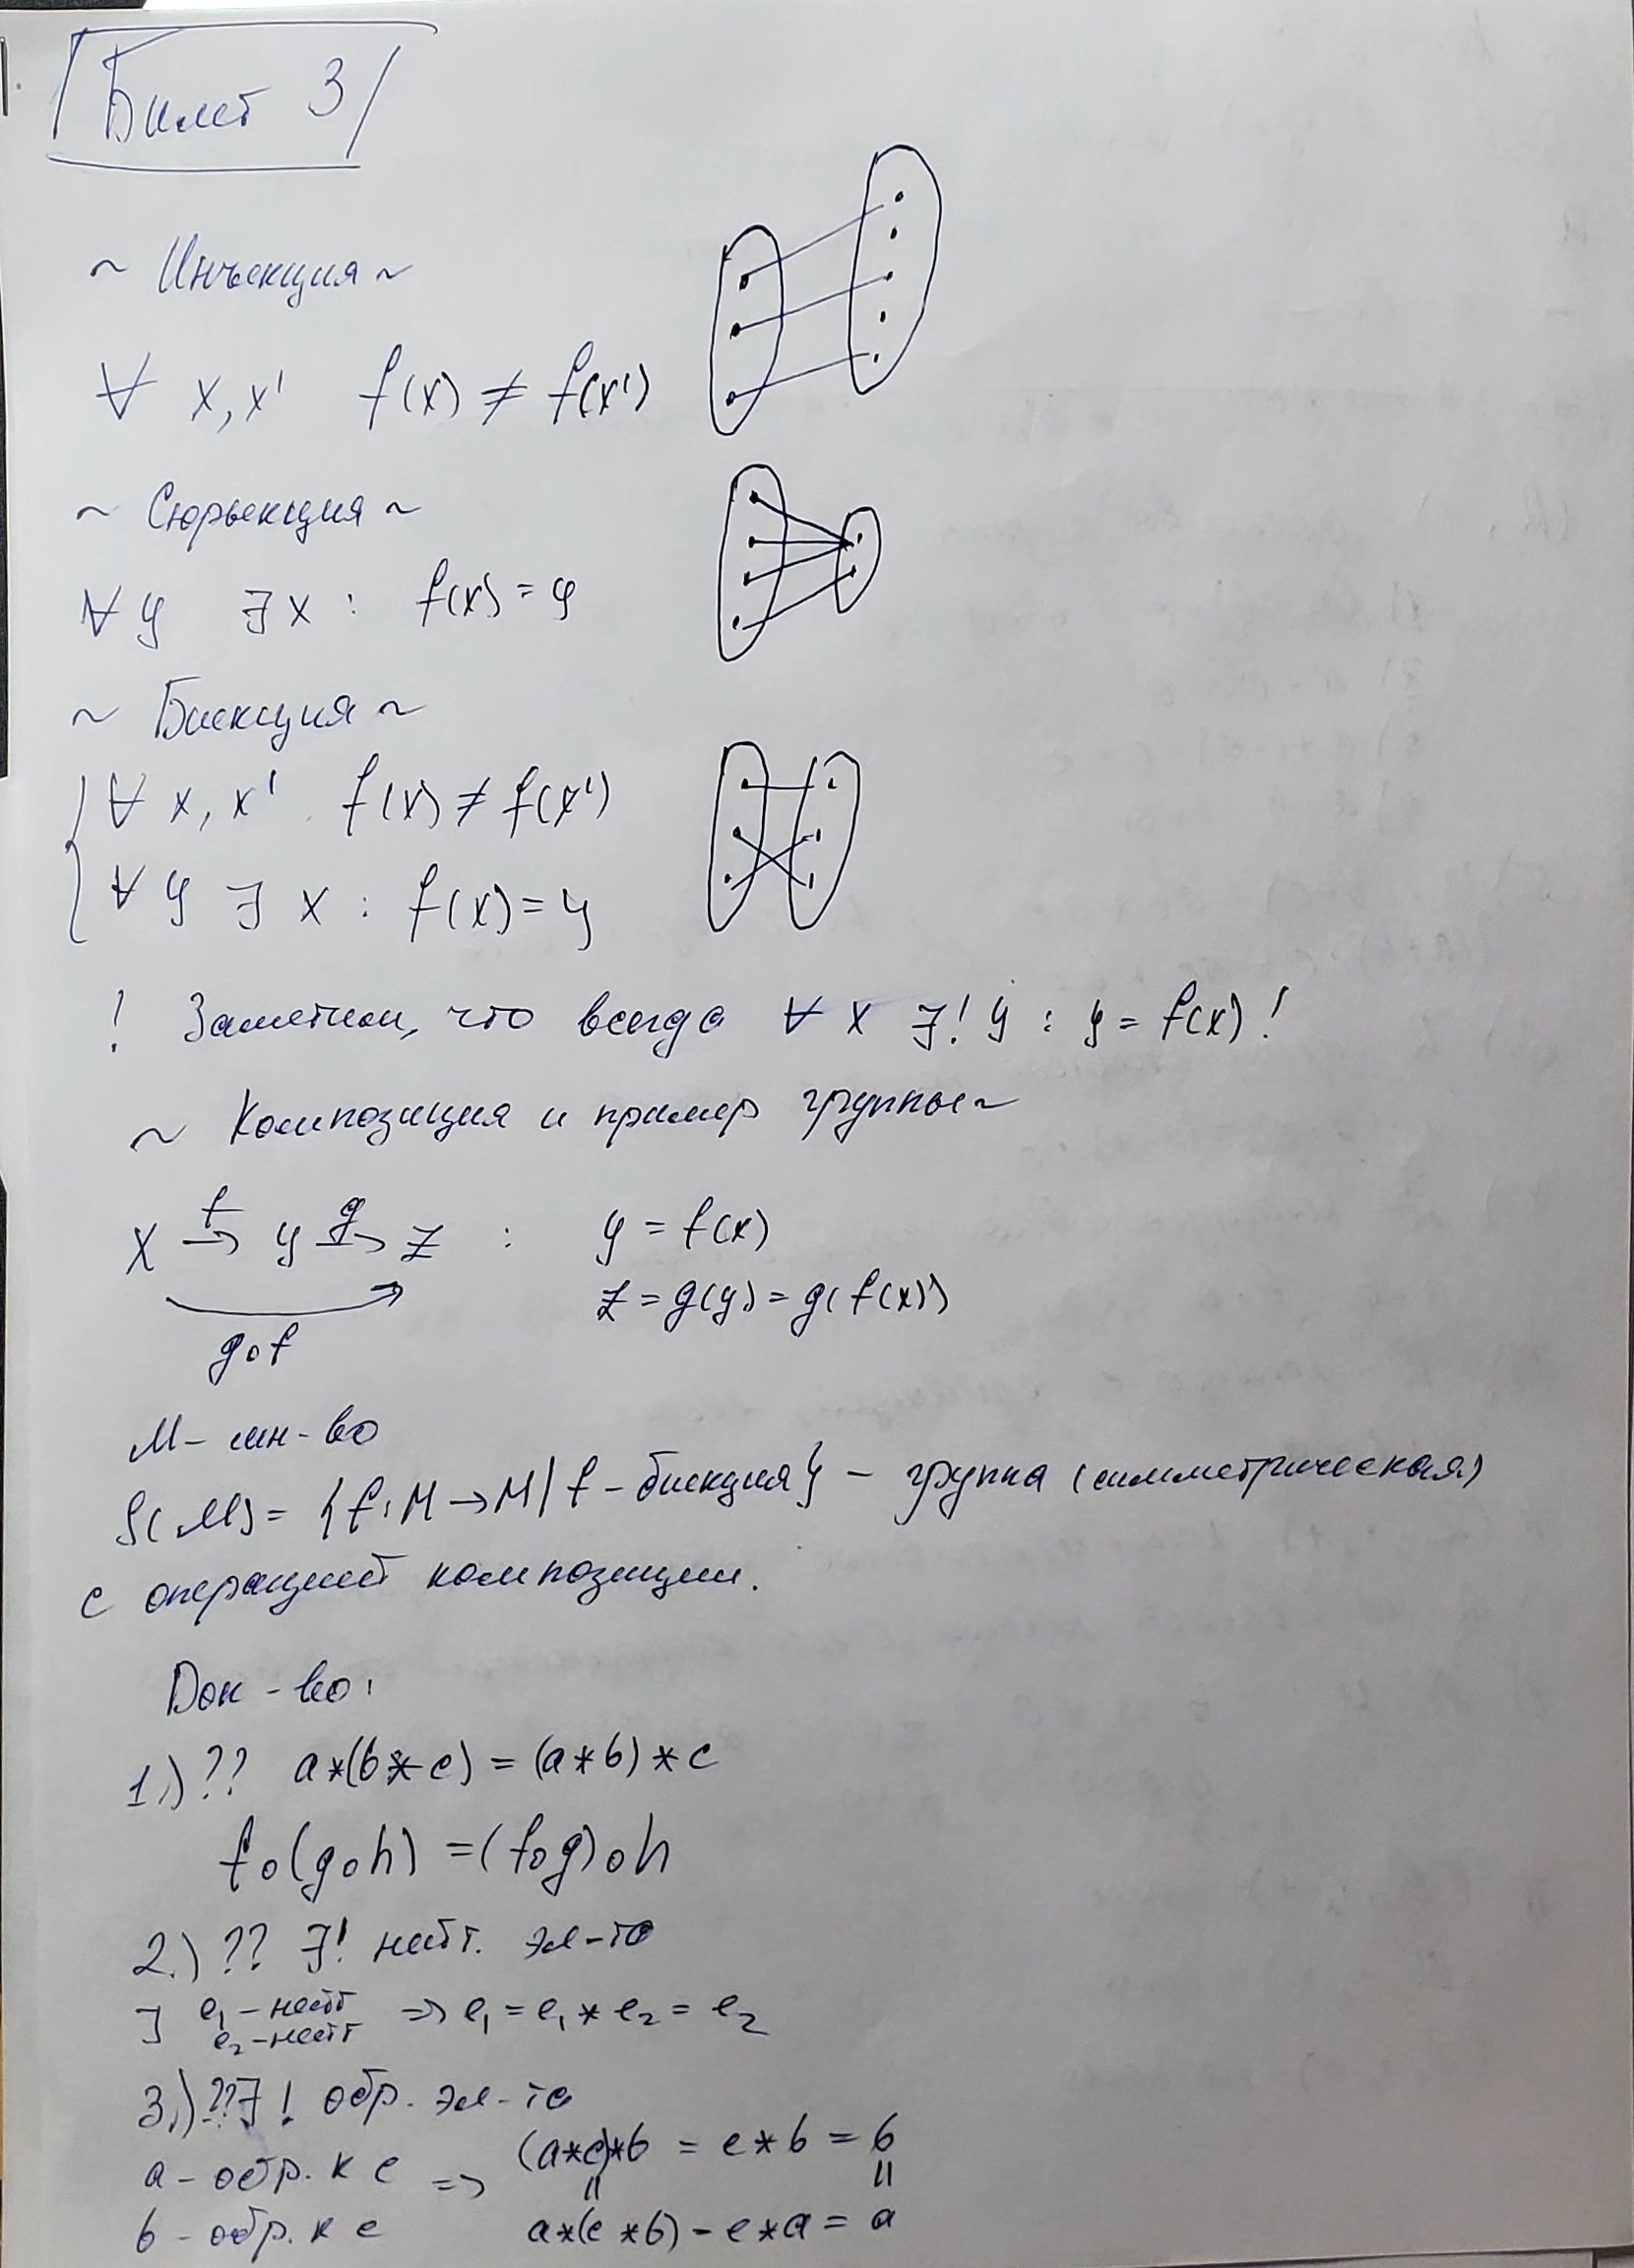 Билет 3
~ Инъекция ~
∀ x, x' f(x) ≠ f(x')
~ Сюръекция ~
∀ y ∃ x : f(x) = y
~ Биекция ~
{ ∀ x, x' f(x) ≠ f(x')
∀ y ∃ x : f(x) = y
! Заметим, что всегда ∀ x ∃! y : y = f(x) !
~ Композиция и пример группы ~
x →(f) y →(g) z : y = f(x)
g∘f z = g(y) = g(f(x))
M - мн-во
S(M) = {f: M → M | f - биекция} - группа (симметрическая)
с операцией композиции.
Док-во:
1.) ?? a*(b*c) = (a*b)*c
f∘(g∘h) = (f∘g)∘h
2.) ?? ∃! нейт. эл-та
] e₁ - нейт
e₂ - нейт ⇒ e₁ = e₁ * e₂ = e₂
3.) ?? ∃! обр. эл-та
a - обр. к c ⇒ (a*c)*b = e*b = b
|| ||
b - обр. к c a*(c*b) = e*a = a